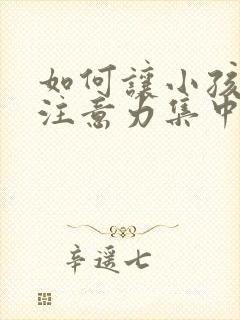 如何讓小孩
注意力集中
辛遥七